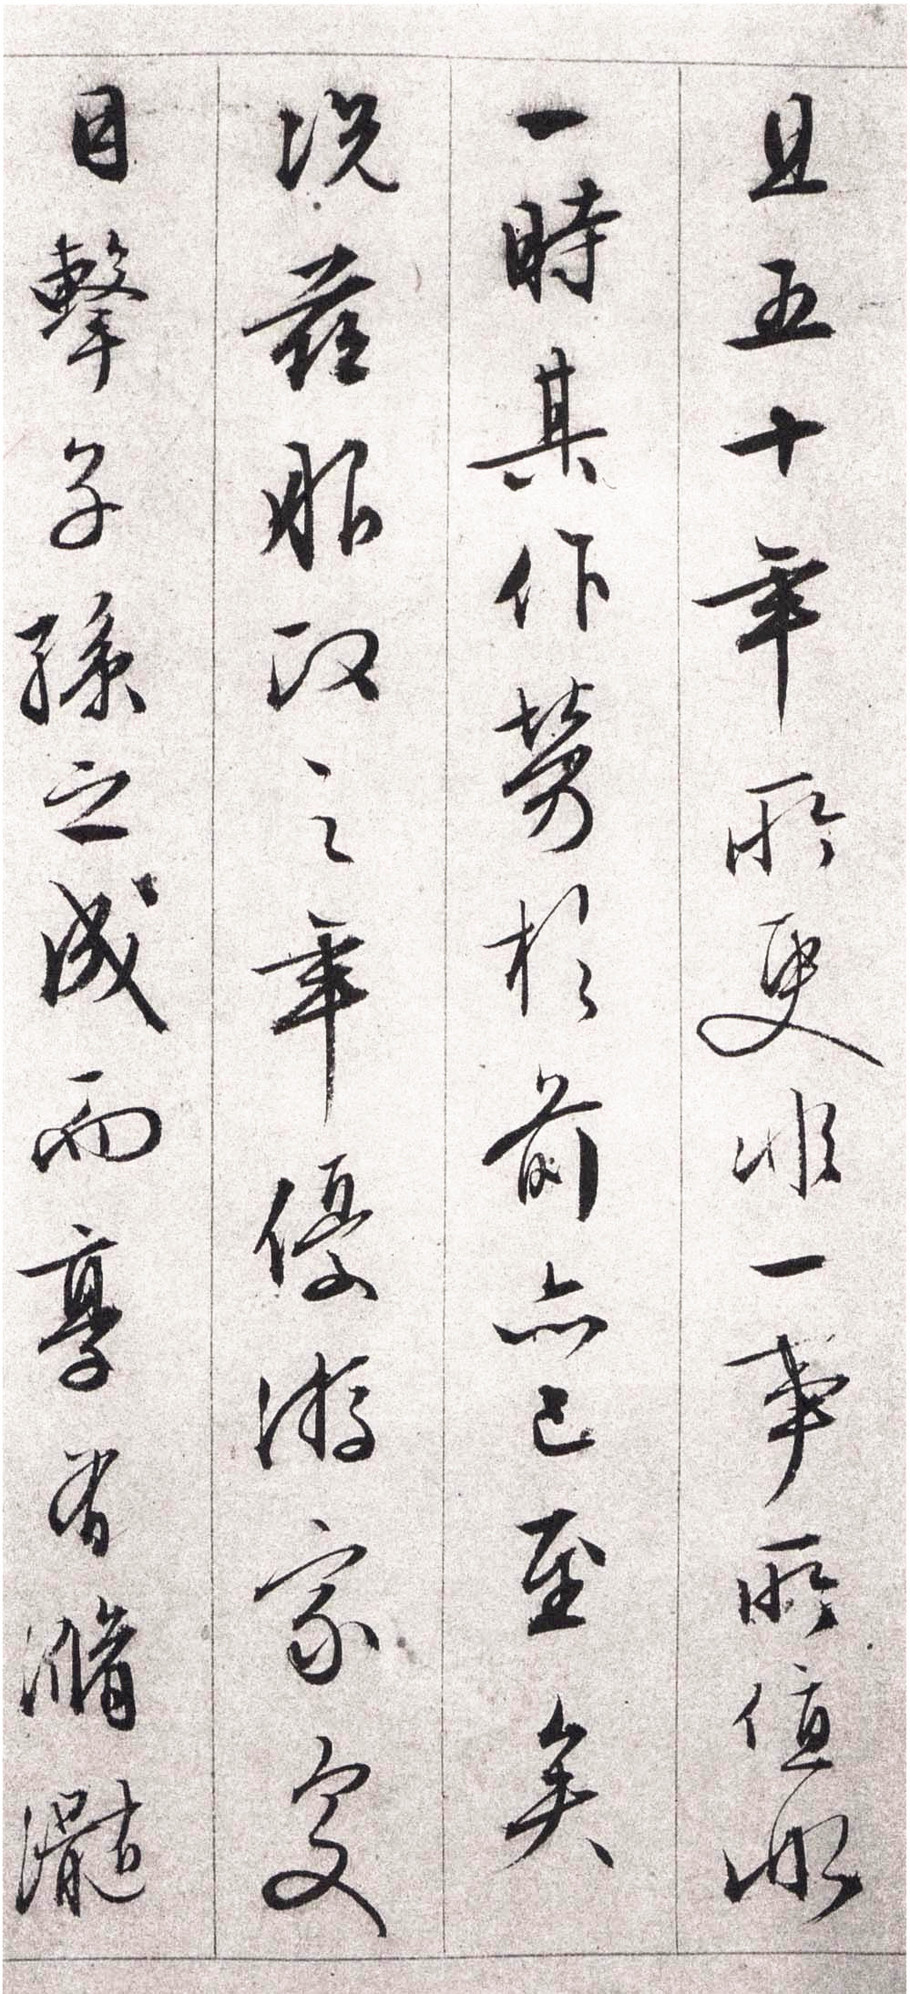 且五十年所更非一事所值非
一時其作勞於前亦已至矣
況茲服政之年優游家
目擊子孫之成而享有滫瀡